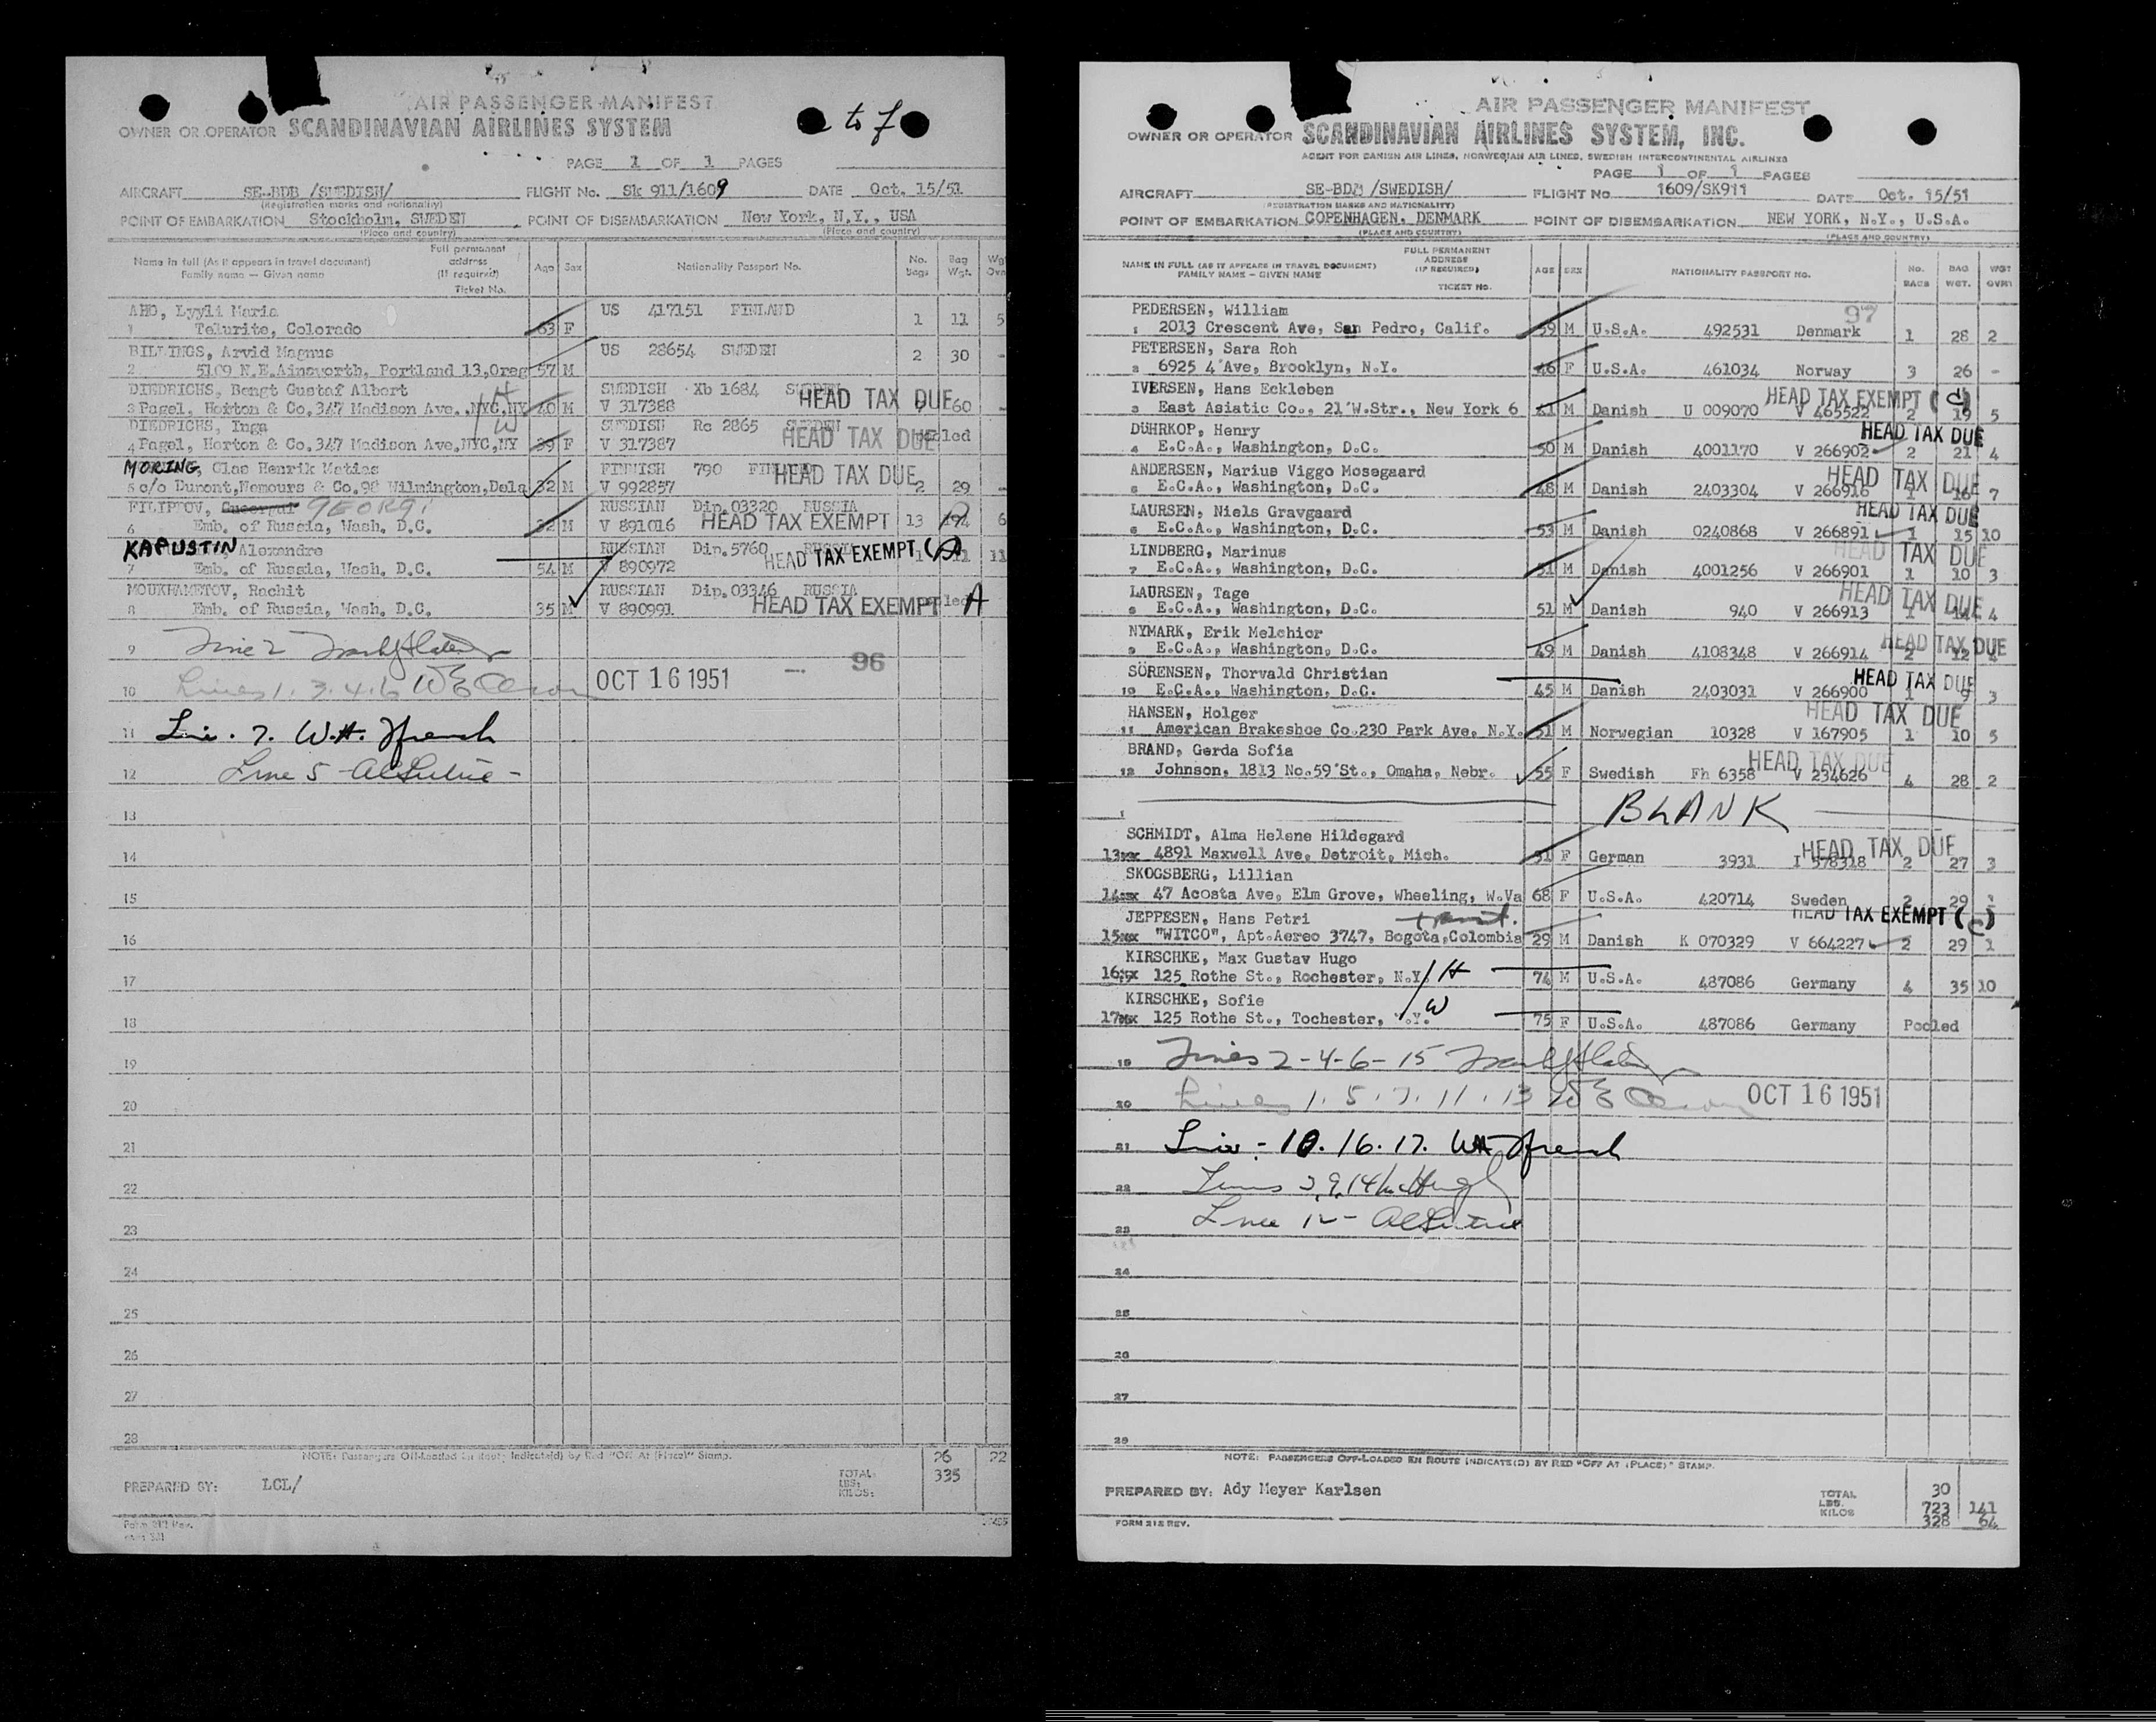 AIR PASSENGER MANIFEST
OWNER OR OPERATOR SCANDINAVIAN AIRLINES SYSTEM
to
PAGE 1 OF 1 PAGES
AIRCRAFT SE-BDB /SWEDISH/ FLIGHT No. Sk 911/1609 DATE Oct. 15/51
(Registration marks and nationality)
POINT OF EMBARKATION Stockholm, SWEDEN POINT OF DISEMBARKATION New York, N.Y., USA
(Place and country) (Place and country)
Name in full (As it appears in travel document) Family name — Given name Full permanent address (If required) Ticket No. Age Sex Nationality Passport No. No. Bags Bag Wgt.
AHO, Lyyli Maria US 417151 FINLAND
1 Telurite, Colorado 63 F 1 11 5
BILLINGS, Arvid Magnus US 28654 SWEDEN 2 30 -
2 5109 N.E.Ainsworth, Portland 13,Oreg 57 M
DIEDRICHS, Bengt Gustaf Albert H SWEDISH Xb 1684 SWEDEN HEAD TAX DUE
3 Pagel, Horton & Co,347 Madison Ave.,NYC,NY 40 M V 317388 60 -
DIEDRICHS, Inga W SWEDISH Rc 2865 SWEDEN HEAD TAX DUE
4 Pagel, Horton & Co,347 Madison Ave,NYC,NY 39 F V 317387
MORING, Clas Henrik Matias FINNISH 790 HEAD TAX DUE
5 c/o Dupont,Nemours & Co.98 Wilmington,Dela 32 M V 992857 2 29 -
FILIPPOV, GEORGI RUSSIAN Dip.03320 RUSSIA
6 Emb. of Russia, Wash, D.C. 32 M V 891016 HEAD TAX EXEMPT 13 194 6
KAPUSTIN Alexandre RUSSIAN Dip.5760 RUSSIA HEAD TAX EXEMPT (A)
7 Emb. of Russia, Wash, D.C. 54 M V 890972
MOUKHAMETOV, Rachit RUSSIAN Dip.03346 RUSSIA
8 Emb. of Russia, Wash, D.C. 35 M V 890991 HEAD TAX EXEMPT A
9 Line 2
10 Lines 1. 3. 4. 6 OCT 16 1951 96
11 Lin. 7. W.A. French
12 Line 5
13
14
15
16
17
18
19
20
21
22
23
24
25
26
27
28
NOTE: Passengers Off-Loaded En Route Indicate(d) by Red "Off At (Place)" Stamp.
26 22
PREPARED BY: LCL/ TOTAL LBS: KILOS: 335
AIR PASSENGER MANIFEST
OWNER OR OPERATOR SCANDINAVIAN AIRLINES SYSTEM, INC.
AGENT FOR DANISH AIR LINES, NORWEGIAN AIR LINES, SWEDISH INTERCONTINENTAL AIRLINES
PAGE 1 OF 1 PAGES
AIRCRAFT SE-BDM /SWEDISH/ FLIGHT No 1609/SK911 DATE Oct. 15/51
(REGISTRATION MARKS AND NATIONALITY)
POINT OF EMBARKATION COPENHAGEN, DENMARK POINT OF DISEMBARKATION NEW YORK, N.Y., U.S.A.
(PLACE AND COUNTRY) (PLACE AND COUNTRY)
NAME IN FULL (AS IT APPEARS IN TRAVEL DOCUMENT) FAMILY NAME - GIVEN NAME FULL PERMANENT ADDRESS (IF REQUIRED) TICKET NO. AGE SEX NATIONALITY PASSPORT NO. NO. BAGS BAG WGT. WGT OVR
PEDERSEN, William 97
1 2013 Crescent Ave, San Pedro, Calif. 59 M U.S.A. 492531 Denmark 1 28 2
PETERSEN, Sara Roh
2 6925 4'Ave, Brooklyn, N.Y. 46 F U.S.A. 461034 Norway 3 26 -
IVERSEN, Hans Eckleben HEAD TAX EXEMPT (C)
3 East Asiatic Co., 21'W.Str., New York 6 41 M Danish U 009070 V 465522 2 19 5
DÜHRKOP, Henry HEAD TAX DUE
4 E.C.A., Washington, D.C. 50 M Danish 4001170 V 266902 2 21 4
ANDERSEN, Marius Viggo Mosegaard HEAD TAX DUE
5 E.C.A., Washington, D.C. 48 M Danish 2403304 V 266916 1 16 7
LAURSEN, Niels Gravgaard HEAD TAX DUE
6 E.C.A., Washington, D.C. 53 M Danish 0240868 V 266891 1 15 10
LINDBERG, Marinus HEAD TAX DUE
7 E.C.A., Washington, D.C. 51 M Danish 4001256 V 266901 1 10 3
LAURSEN, Tage HEAD TAX DUE
8 E.C.A., Washington, D.C. 51 M Danish 940 V 266913 1 14 4
NYMARK, Erik Melchior HEAD TAX DUE
9 E.C.A., Washington, D.C. 49 M Danish 4108348 V 266914 2 12 4
SÖRENSEN, Thorvald Christian HEAD TAX DUE
10 E.C.A., Washington, D.C. 45 M Danish 2403031 V 266900 1 9 3
HANSEN, Holger HEAD TAX DUE
11 American Brakeshoe Co.230 Park Ave, N.Y. 51 M Norwegian 10328 V 167905 1 10 5
BRAND, Gerda Sofia HEAD TAX DUE
12 Johnson, 1813 No.59'St., Omaha, Nebr. 55 F Swedish Fh 6358 V 234626 4 28 2
BLANK
SCHMIDT, Alma Helene Hildegard HEAD TAX DUE
13 4891 Maxwell Ave, Detroit, Mich. 51 F German 3931 I 578318 2 27 3
SKOGSBERG, Lillian
14 47 Acosta Ave, Elm Grove, Wheeling, W.Va 68 F U.S.A. 420714 Sweden 2 29 1
JEPPESEN, Hans Petri transit. HEAD TAX EXEMPT (C)
15 "WITCO", Apt.Aereo 3747, Bogota,Colombia 29 M Danish K 070329 V 664227 2 29 1
KIRSCHKE, Max Gustav Hugo
16 125 Rothe St., Rochester, N.Y. H 74 M U.S.A. 487086 Germany 4 35 10
KIRSCHKE, Sofie
17 125 Rothe St., Tochester, N.Y. W 75 F U.S.A. 487086 Germany Pooled
19 Lines 2-4-6-15
20 Lines 1. 5. 7. 11. 13 OCT 16 1951
21 Lin - 10. 16. 17. WA French
22 Lines 3,9,14
23 Line 12 -
24
25
26
27
28
NOTE: PASSENGERS OFF-LOADED EN ROUTE INDICATE(D) BY RED "OFF AT (PLACE)" STAMP.
PREPARED BY: Ady Meyer Karlsen TOTAL 30
LBS. 723 141
KILOS 328 64
FORM 212 REV.